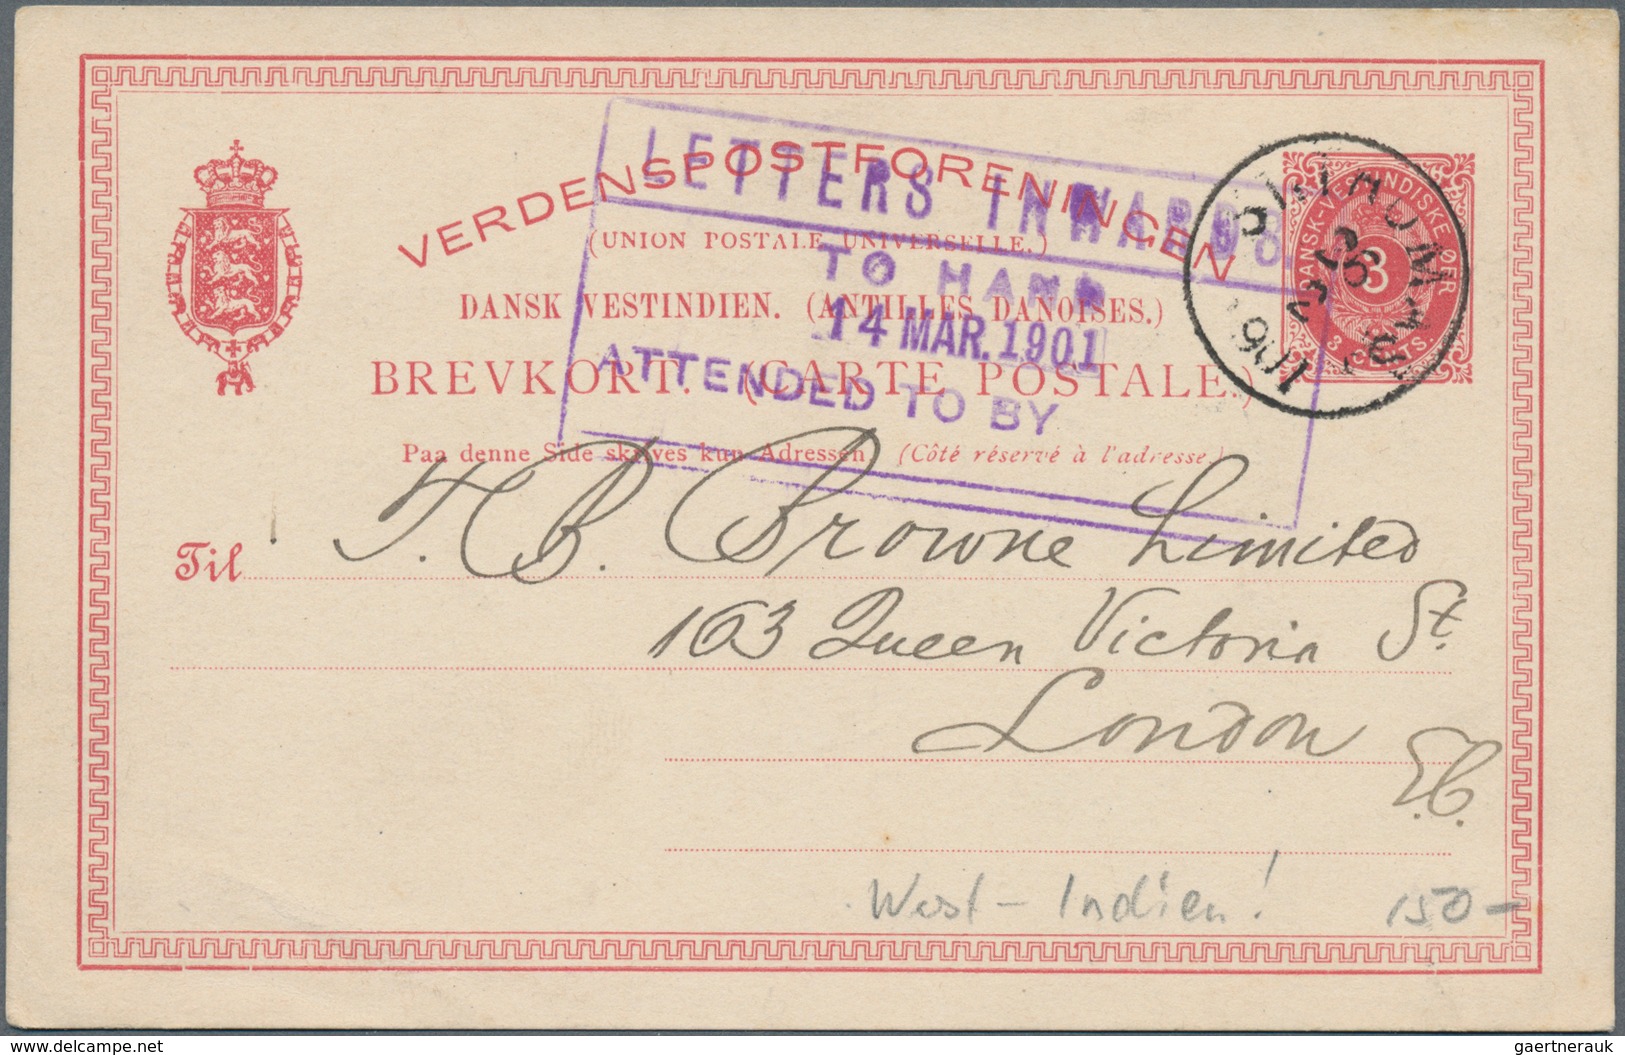 VERDENSPOSTFORENINGEN
(UNION POSTALE UNIVERSELLE.)
DANSK VESTINDIEN. (ANTILLES DANOISES.)
BREVKORT. (CARTE POSTALE.)
Paa denne Side skrives kun Adressen (Côté réservé à l'adresse.)
LETTERS INWARDS
TO HAND
14 MAR. 1901
ATTENDED TO BY
DANSK-VESTINDISKE ØER
3
3 CENTS.
1901
Til T. B. Browne Limited
163 Queen Victoria St.
London
E.C.
West-Indien! 150-
www.delcampe.net
gaertnerauk